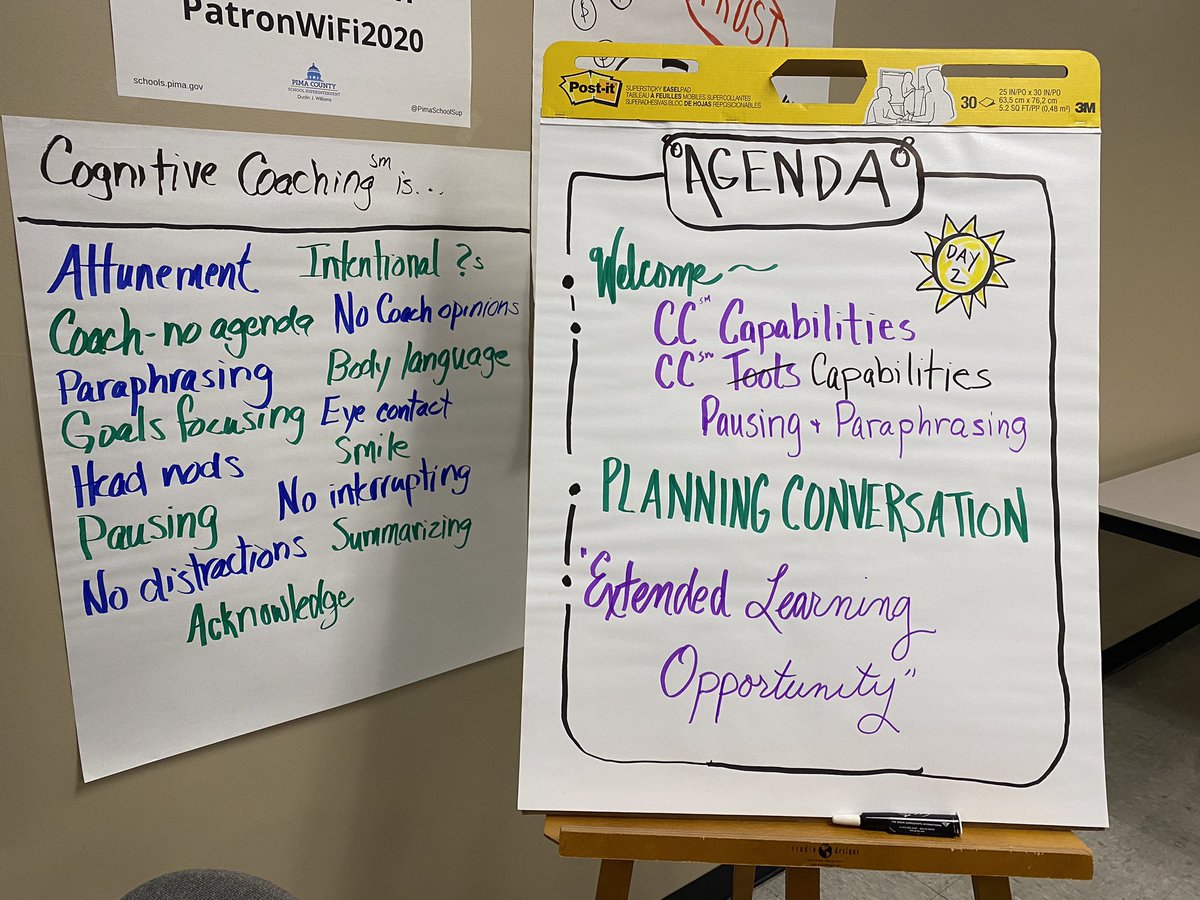 PatronWiFi2020
schools.pima.gov
PIMA COUNTY
SCHOOL SUPERINTENDENT
Dustin J. Williams
@PimaSchoolSup
TRUST
Cognitive Coaching℠ is...
Attunement
Intentional ?s
Coach-no agenda
No Coach opinions
Paraphrasing
Body language
Goals focusing
Eye contact
Head nods
Smile
Pausing
No interrupting
No distractions
Summarizing
Acknowledge
Post-it
SUPERSTICKY EASEL PAD
TABLEAU À FEUILLES MOBILES SUPERCOLLANTES
SUPERADHESIVAS BLOC DE HOJAS REPOSICIONABLES
30
25 IN/PO x 30 IN/PO
63,5 cm x 76,2 cm
5.2 SQ FT/PI² (0,48 m²)
3M
AGENDA
DAY
2
Welcome~
CC℠ Capabilities
CC℠ Tools Capabilities
Pausing + Paraphrasing
PLANNING CONVERSATION
"Extended Learning
Opportunity"
studio designs